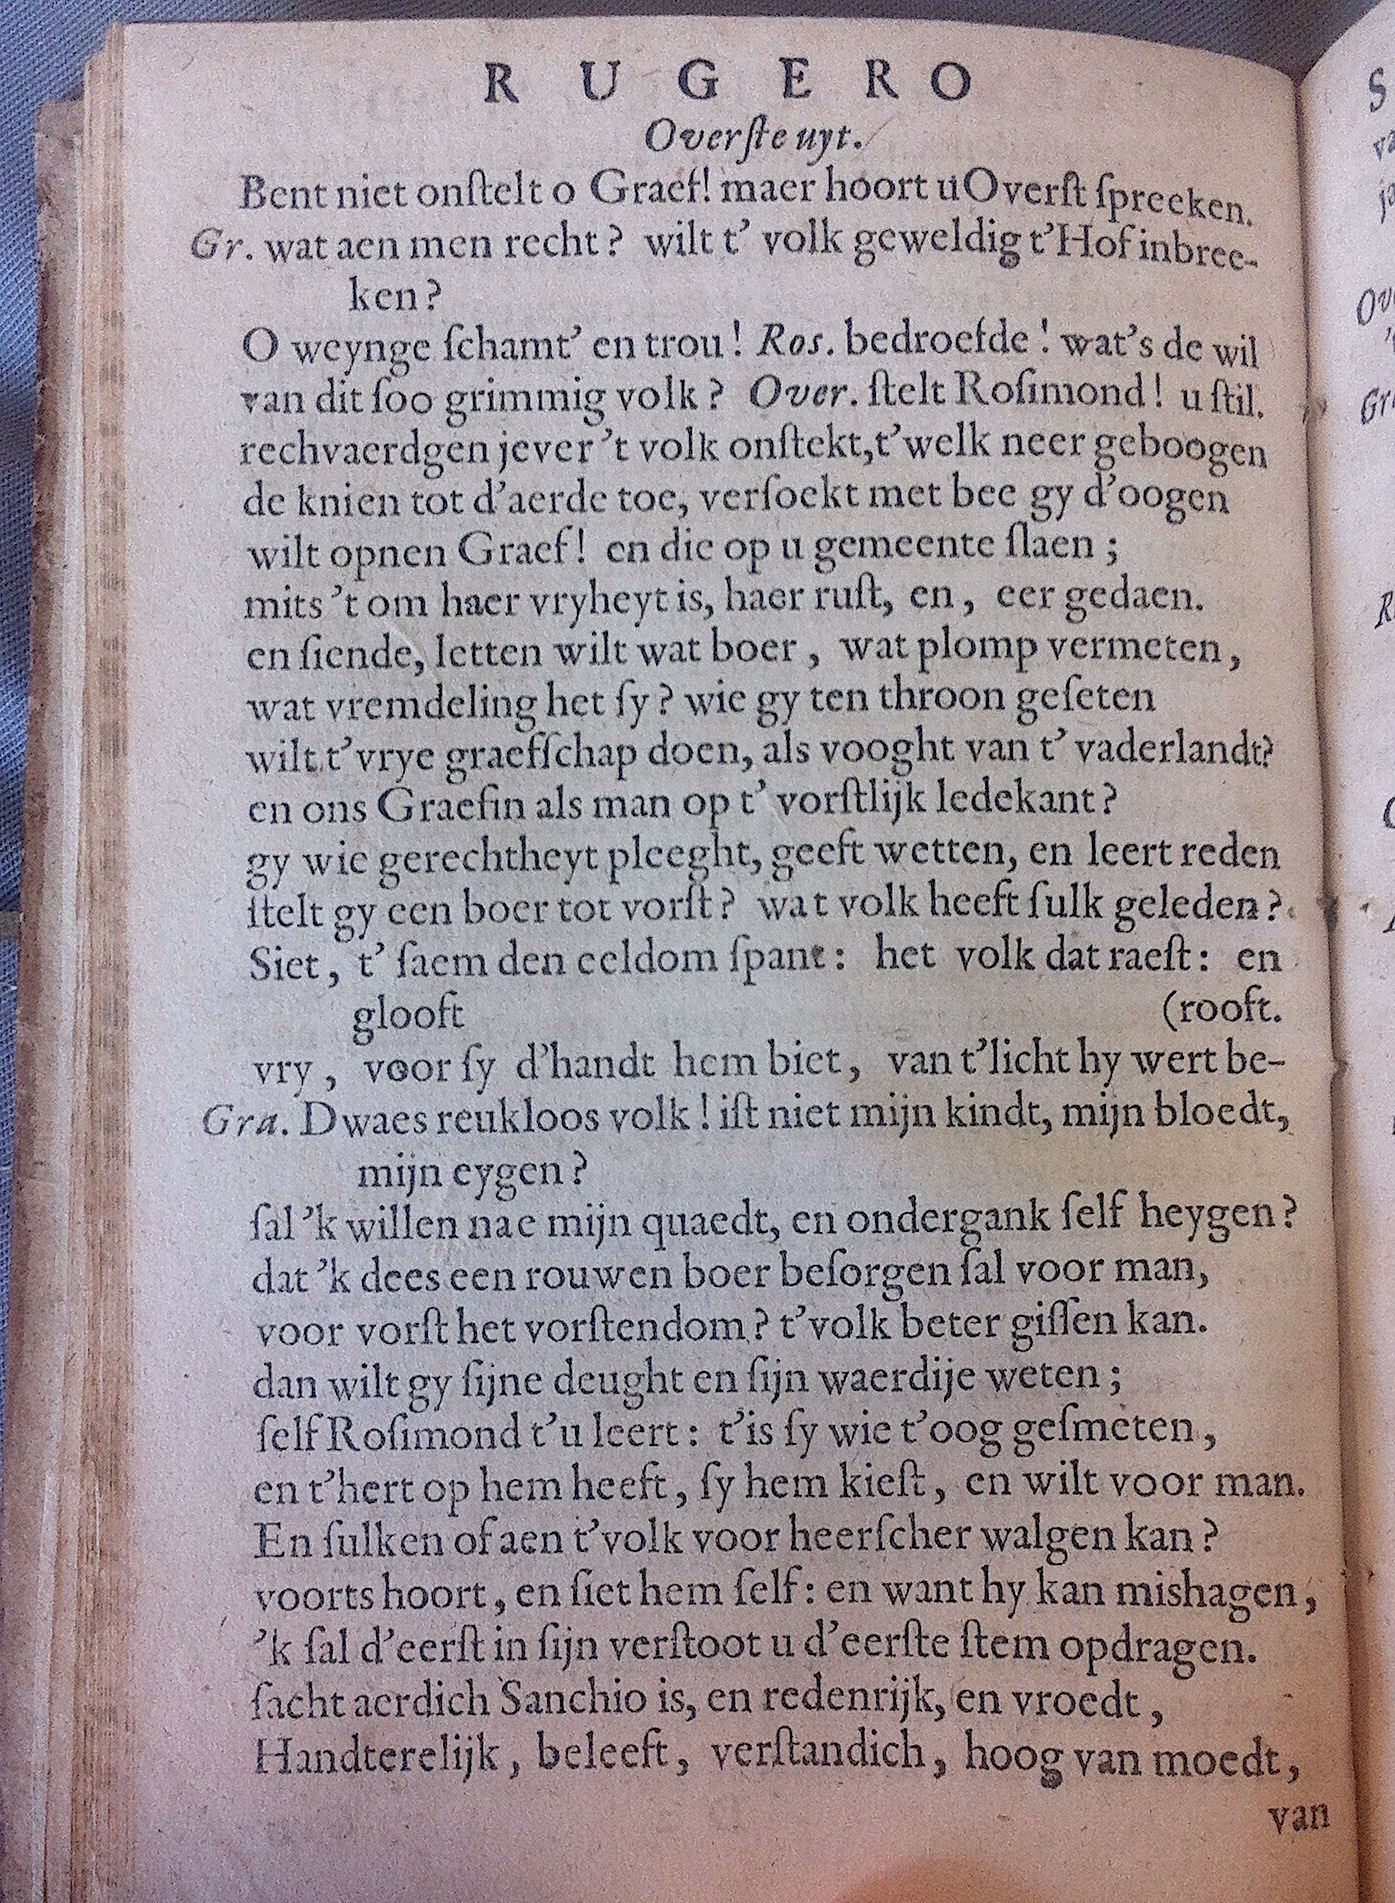 R U G E R O
Overſte uyt.
Bent niet onſtelt o Graef! maer hoort u Overſt ſpreeken.
Gr. wat aen men recht? wilt t' volk geweldig t'Hof inbree-
ken?
O weynge ſchamt' en trou! Ros. bedroefde! wat's de wil
van dit ſoo grimmig volk? Over. ſtelt Roſimond! u ſtil.
rechvaerdgen jever 't volk onſtekt, t'welk neer geboogen
de knien tot d'aerde toe, verſoekt met bee gy d'oogen
wilt opnen Graef! en die op u gemeente ſlaen;
mits 't om haer vryheyt is, haer ruſt, en, eer gedaen.
en ſiende, letten wilt wat boer, wat plomp vermeten,
wat vremdeling het ſy? wie gy ten throon geſeten
wilt t'vrye graefſchap doen, als vooght van t' vaderlandt?
en ons Graefin als man op t' vorſtlijk ledekant?
gy wie gerechtheyt pleeght, geeft wetten, en leert reden
ſtelt gy een boer tot vorſt? wat volk heeft ſulk geleden?
Siet, t' ſaem den eeldom ſpant: het volk dat raeſt: en
glooft (rooft.
vry, voor ſy d'handt hem biet, van t'licht hy wert be-
Gra. Dwaes reukloos volk! iſt niet mijn kindt, mijn bloedt,
mijn eygen?
ſal 'k willen nae mijn quaedt, en ondergank ſelf heygen?
dat 'k dees een rouwen boer beſorgen ſal voor man,
voor vorſt het vorſtendom? t'volk beter giſſen kan.
dan wilt gy ſijne deught en ſijn waerdije weten;
ſelf Roſimond t'u leert: t'is ſy wie t'oog geſmeten,
en t'hert op hem heeft, ſy hem kieſt, en wilt voor man.
En ſulken of aen t'volk voor heerſcher walgen kan?
voorts hoort, en ſiet hem ſelf: en want hy kan mishagen,
'k ſal d'eerſt in ſijn verſtoot u d'eerſte ſtem opdragen.
ſacht aerdich Sanchio is, en redenrijk, en vroedt,
Handterelijk, beleeft, verſtandich, hoog van moedt,
van